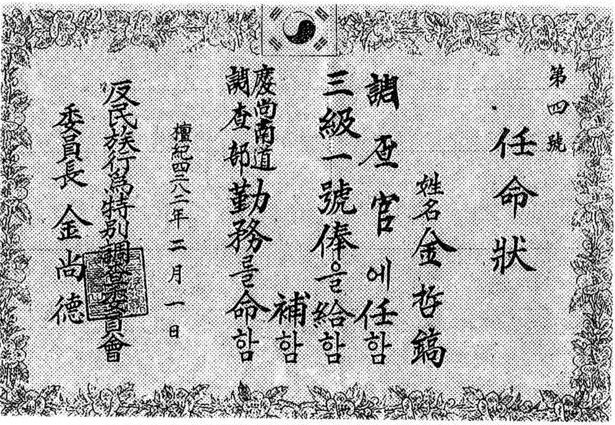 第四號
任命狀
姓名 金哲鎬
調査官에任함
三級一號俸을給함
補함
慶尙南道
調査部勤務를命함
檀紀四二八二年二月一日
反民族行爲特別調査委員會
委員長 金尙德